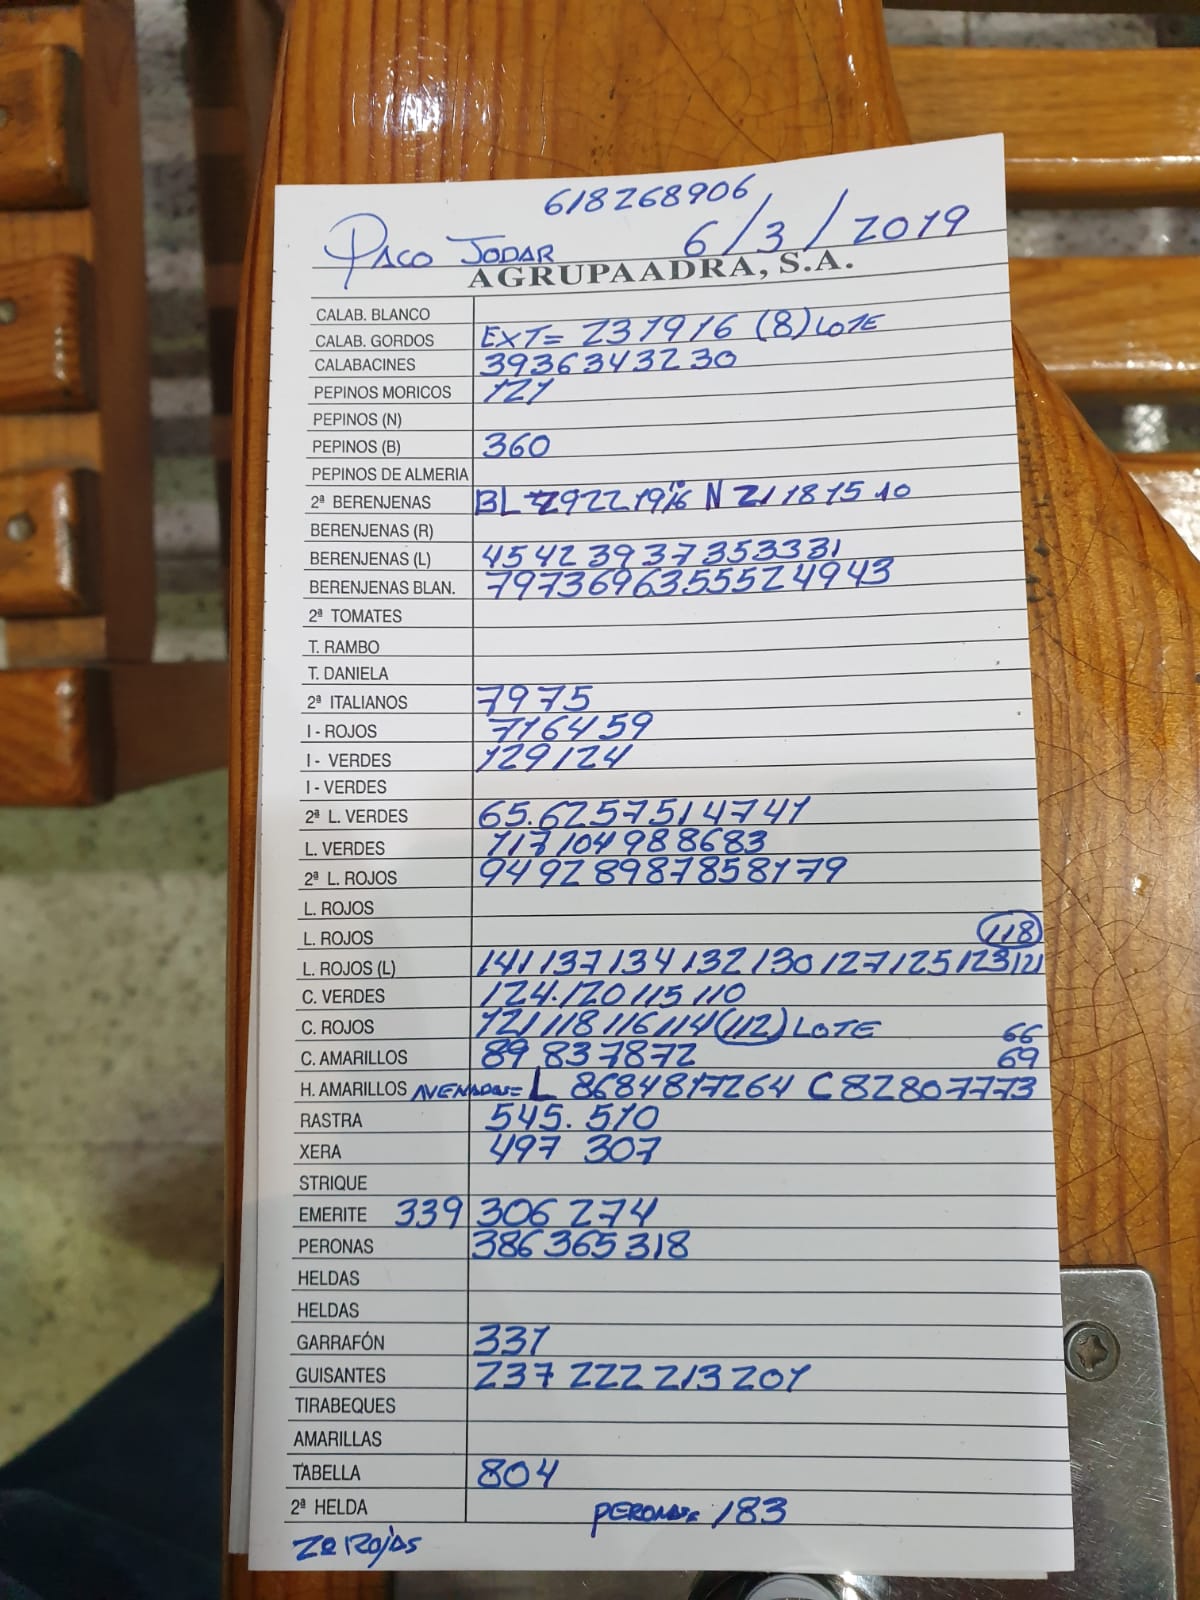 618268906
PACO JODAR 6/3/2019
AGRUPAADRA, S.A.
CALAB. BLANCO
CALAB. GORDOS EXT= 23 19 16 (8) LOTE
CALABACINES 39 36 34 32 30
PEPINOS MORICOS 121
PEPINOS (N)
PEPINOS (B) 360
PEPINOS DE ALMERIA
2ª BERENJENAS BL 29 22 19 16 N 21 18 15 10
BERENJENAS (R)
BERENJENAS (L) 45 42 39 37 35 33 31
BERENJENAS BLAN. 79 73 69 63 55 52 49 43
2ª TOMATES
T. RAMBO
T. DANIELA
2ª ITALIANOS 79 75
I - ROJOS 71 64 59
I - VERDES 129 124
I - VERDES
2ª L. VERDES 65. 62 57 51 47 41
L. VERDES 117 104 98 86 83
2ª L. ROJOS 94 92 89 87 85 81 79
L. ROJOS
L. ROJOS 118
L. ROJOS (L) 141 137 134 132 130 127 125 123 121
C. VERDES 124. 120 115 110
C. ROJOS 121 118 116 114 (112) LOTE 66
C. AMARILLOS 89 83 78 72 69
H. AMARILLOS L 86 84 81 72 64 C 82 80 77 73
RASTRA 545. 510
XERA 497 307
STRIQUE
EMERITE 339 306 274
PERONAS 386 365 318
HELDAS
HELDAS
GARRAFÓN 331
GUISANTES 237 222 213 201
TIRABEQUES
AMARILLAS
TABELLA 804
2ª HELDA PERONAS= 183
2ª ROJAS